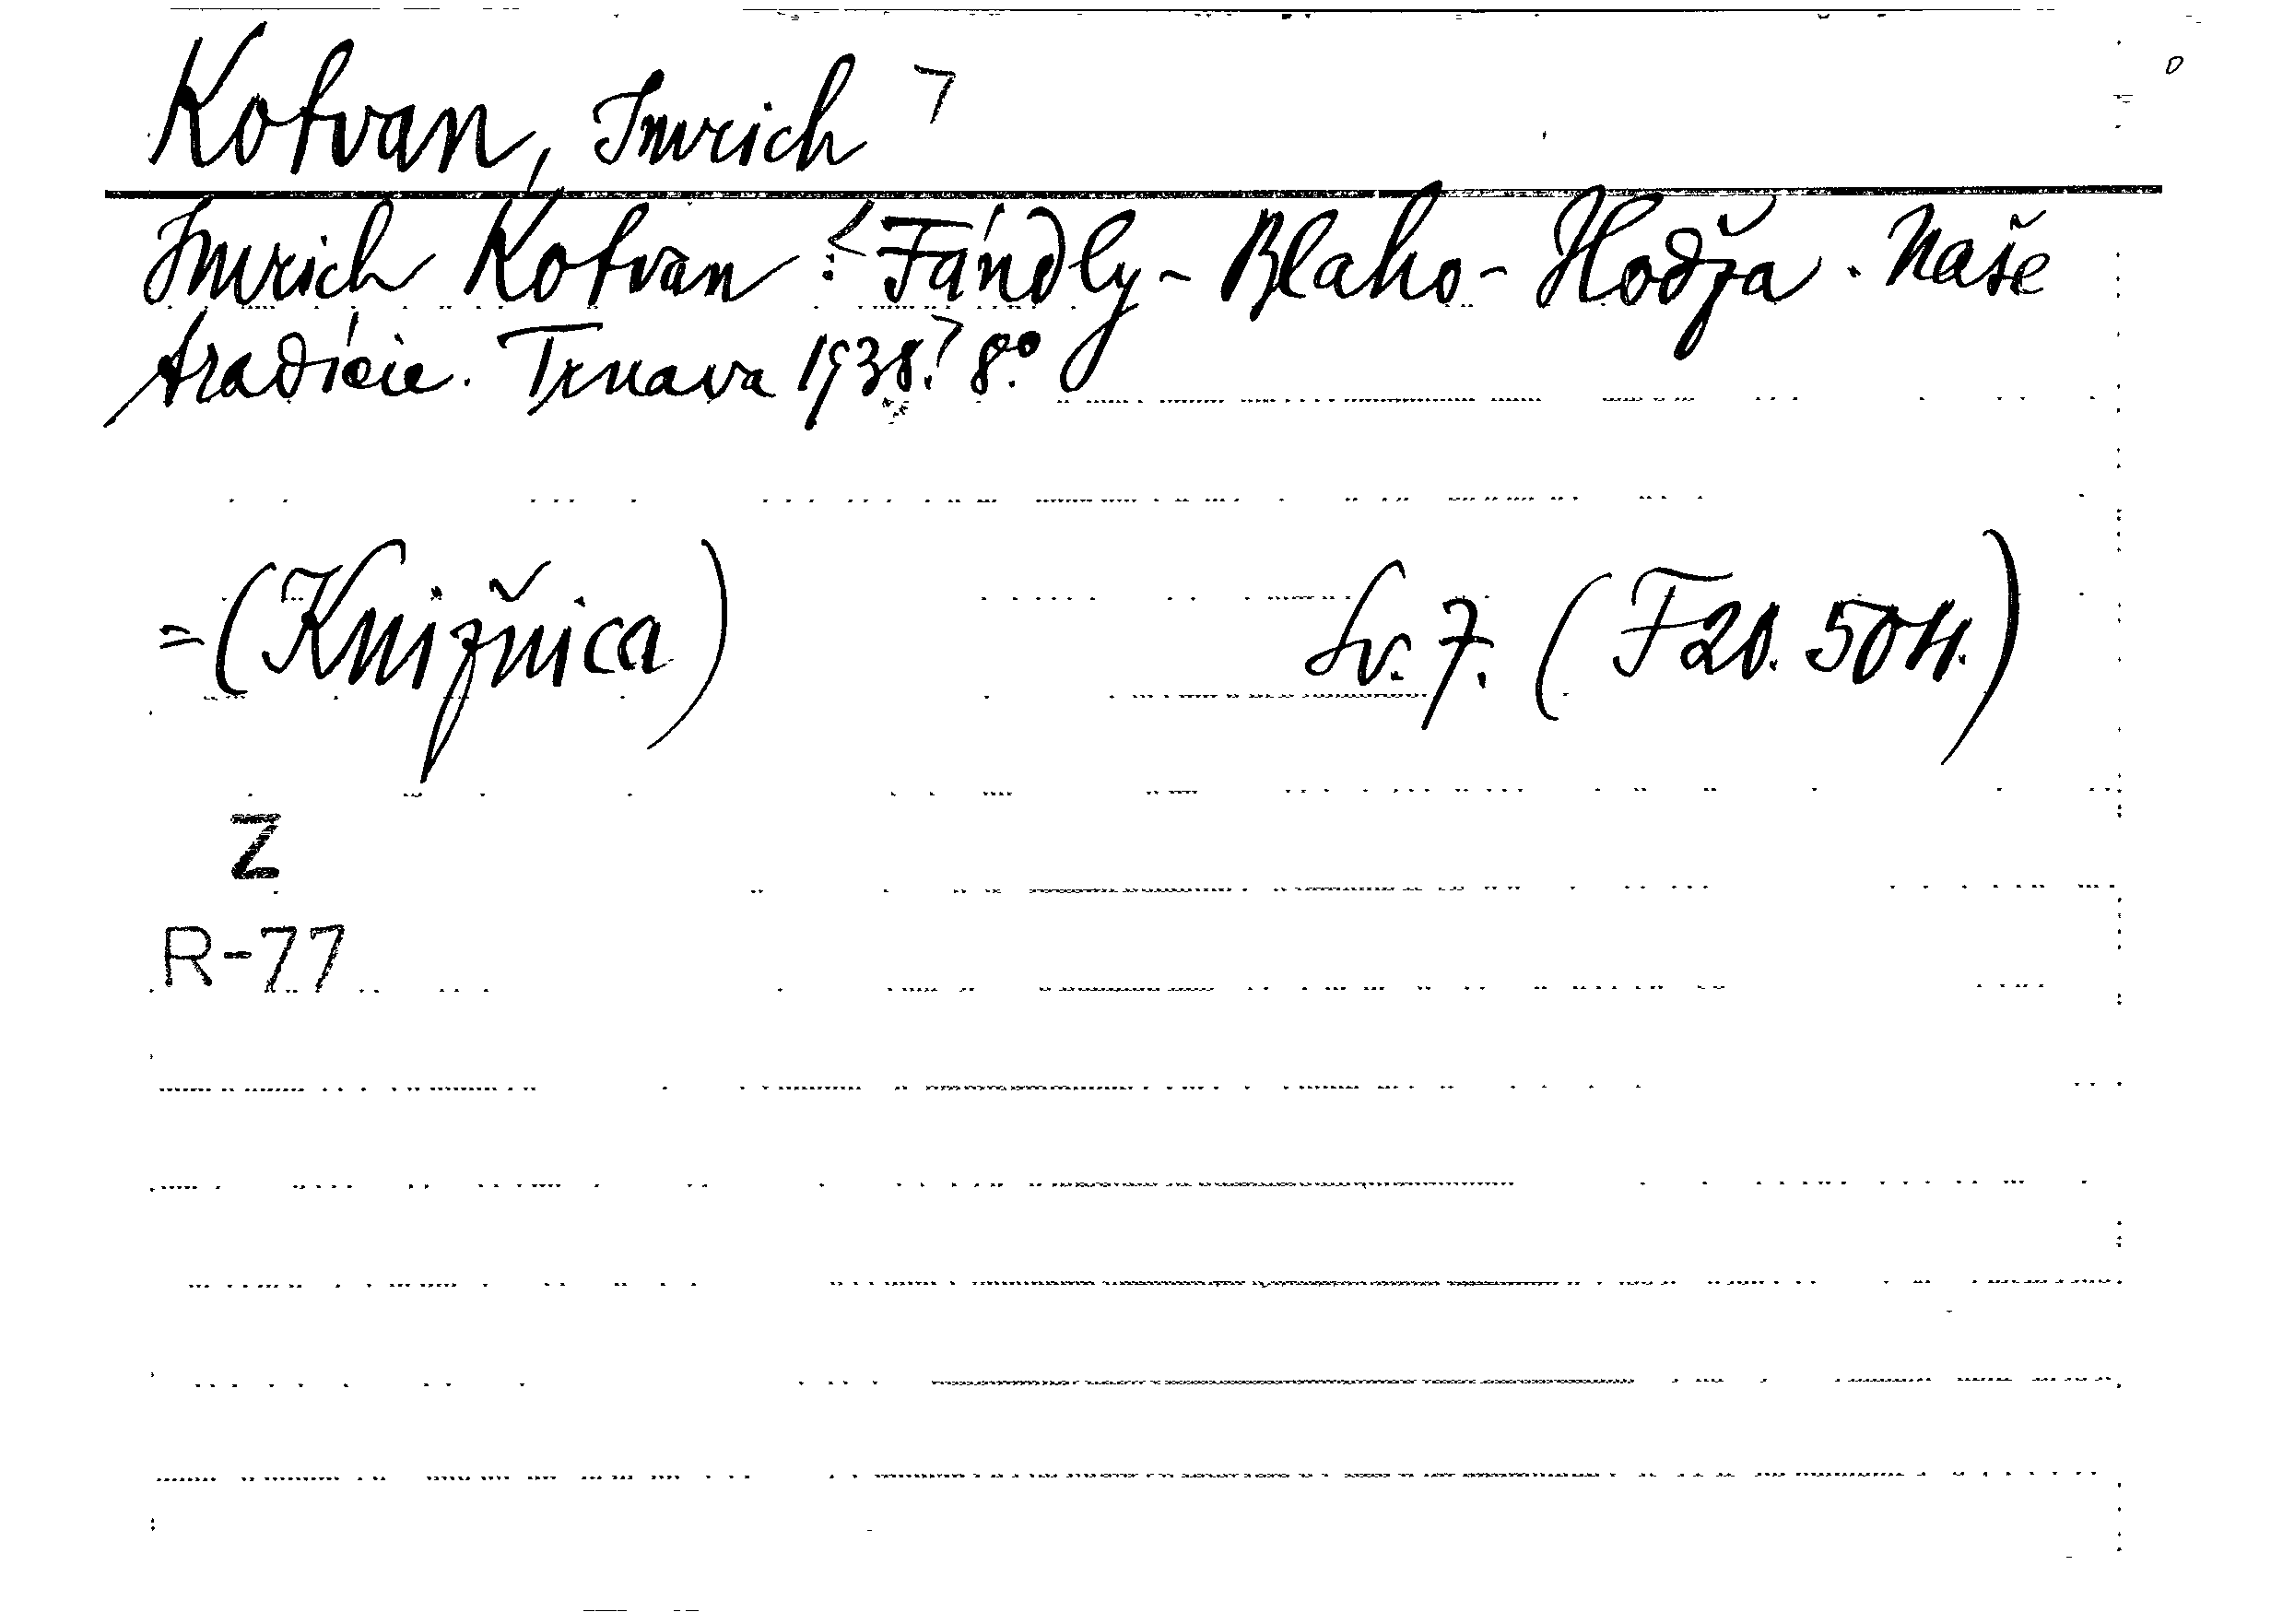 Kotvan, Imrich ⌝
Imrich Kotvan: Fándly - Blaho - Hodža. Naše
tradície. Trnava 1938.⌝ 8.º
= (Knižnica) Sv. 7. (F 20.504.)
Z
R-77